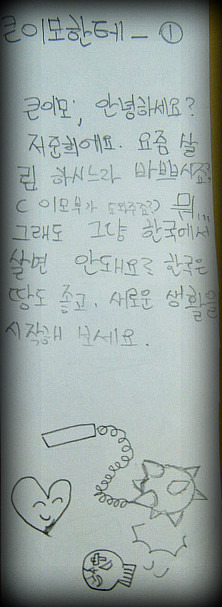 큰이모한테 - ①
큰이모, 안녕하세요?
저준희에요. 요즘 살
림 하시느라 바쁘시죠?
( 이모부가 도와주죠?) 뭐...
그래도 그냥 한국에서
살면 안돼요? 한국은
땅도 좋고, 새로운 생활을
시작해 보세요.